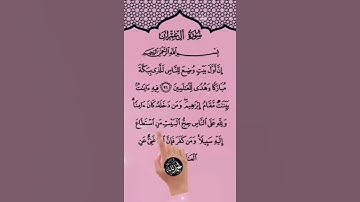 سورة آل عمران
بسم الله الرحمن الرحيم
إِنَّ أَوَّلَ بَيْتٍ وُضِعَ لِلنَّاسِ لَلَّذِي بِبَكَّةَ
مُبَارَكًا وَهُدًى لِّلْعَالَمِينَ ﴿٩٦﴾ فِيهِ ءَايَاتٌ
بَيِّنَاتٌ مَّقَامُ إِبْرَاهِيمَ وَمَن دَخَلَهُ كَانَ ءَامِنًا
وَلِلَّهِ عَلَى النَّاسِ حِجُّ الْبَيْتِ مَنِ اسْتَطَاعَ
إِلَيْهِ سَبِيلًا وَمَن كَفَرَ فَإِنَّ غَنِيٌّ عَنِ